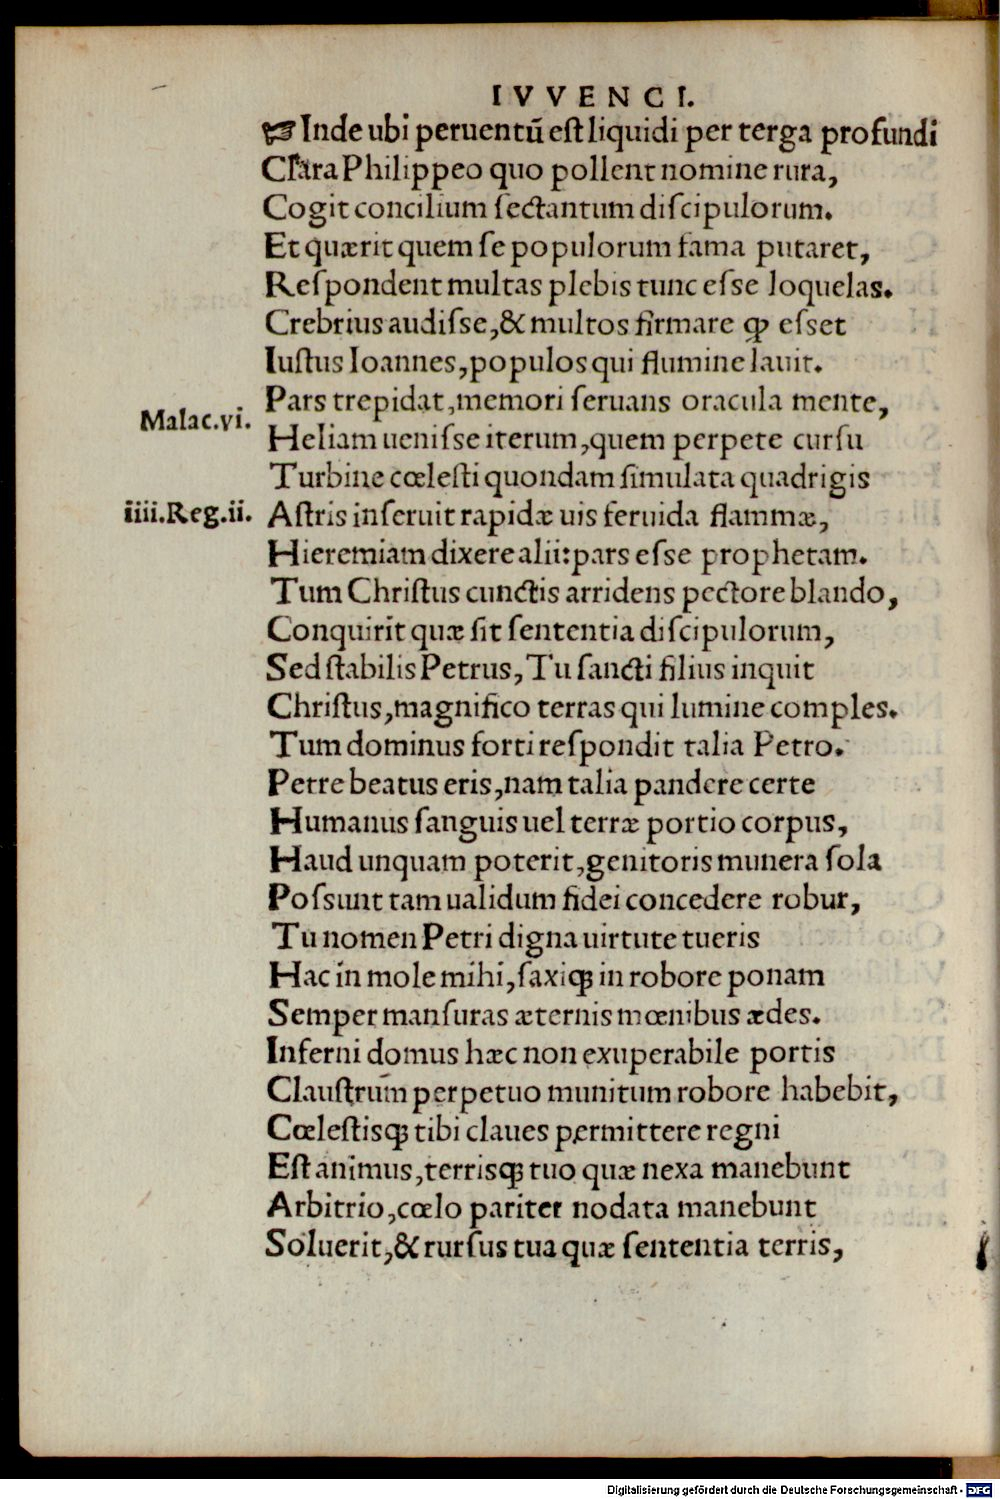 IVVENCI.
☞Inde ubi peruentū est liquidi per terga profundi
Clara Philippeo quo pollent nomine rura,
Cogit concilium sectantum discipulorum.
Et quærit quem se populorum fama putaret,
Respondent multas plebis tunc esse loquelas.
Crebrius audisse, & multos firmare ꝙ esset
Iustus Ioannes, populos qui flumine lauit.
Pars trepidat, memori seruans oracula mente,
Malac.vi.
Heliam uenisse iterum, quem perpete cursu
Turbine cœlesti quondam simulata quadrigis
iiii.Reg.ii. Astris inseruit rapidæ uis feruida flammæ,
Hieremiam dixere alii: pars esse prophetam.
Tum Christus cunctis arridens pectore blando,
Conquirit quæ sit sententia discipulorum,
Sed stabilis Petrus, Tu sancti filius inquit
Christus, magnifico terras qui lumine comples.
Tum dominus forti respondit talia Petro.
Petre beatus eris, nam talia pandere certe
Humanus sanguis uel terræ portio corpus,
Haud unquam poterit, genitoris munera sola
Possunt tam ualidum fidei concedere robur,
Tu nomen Petri digna uirtute tueris
Hac in mole mihi, saxiqꝫ in robore ponam
Semper mansuras æternis mœnibus ædes.
Inferni domus hæc non exuperabile portis
Claustrum perpetuo munitum robore habebit,
Cœlestisqꝫ tibi claues permittere regni
Est animus, terrisqꝫ tuo quæ nexa manebunt
Arbitrio, cœlo pariter nodata manebunt
Soluerit, & rursus tua quæ sententia terris,
Digitalisierung gefördert durch die Deutsche Forschungsgemeinschaft - DFG